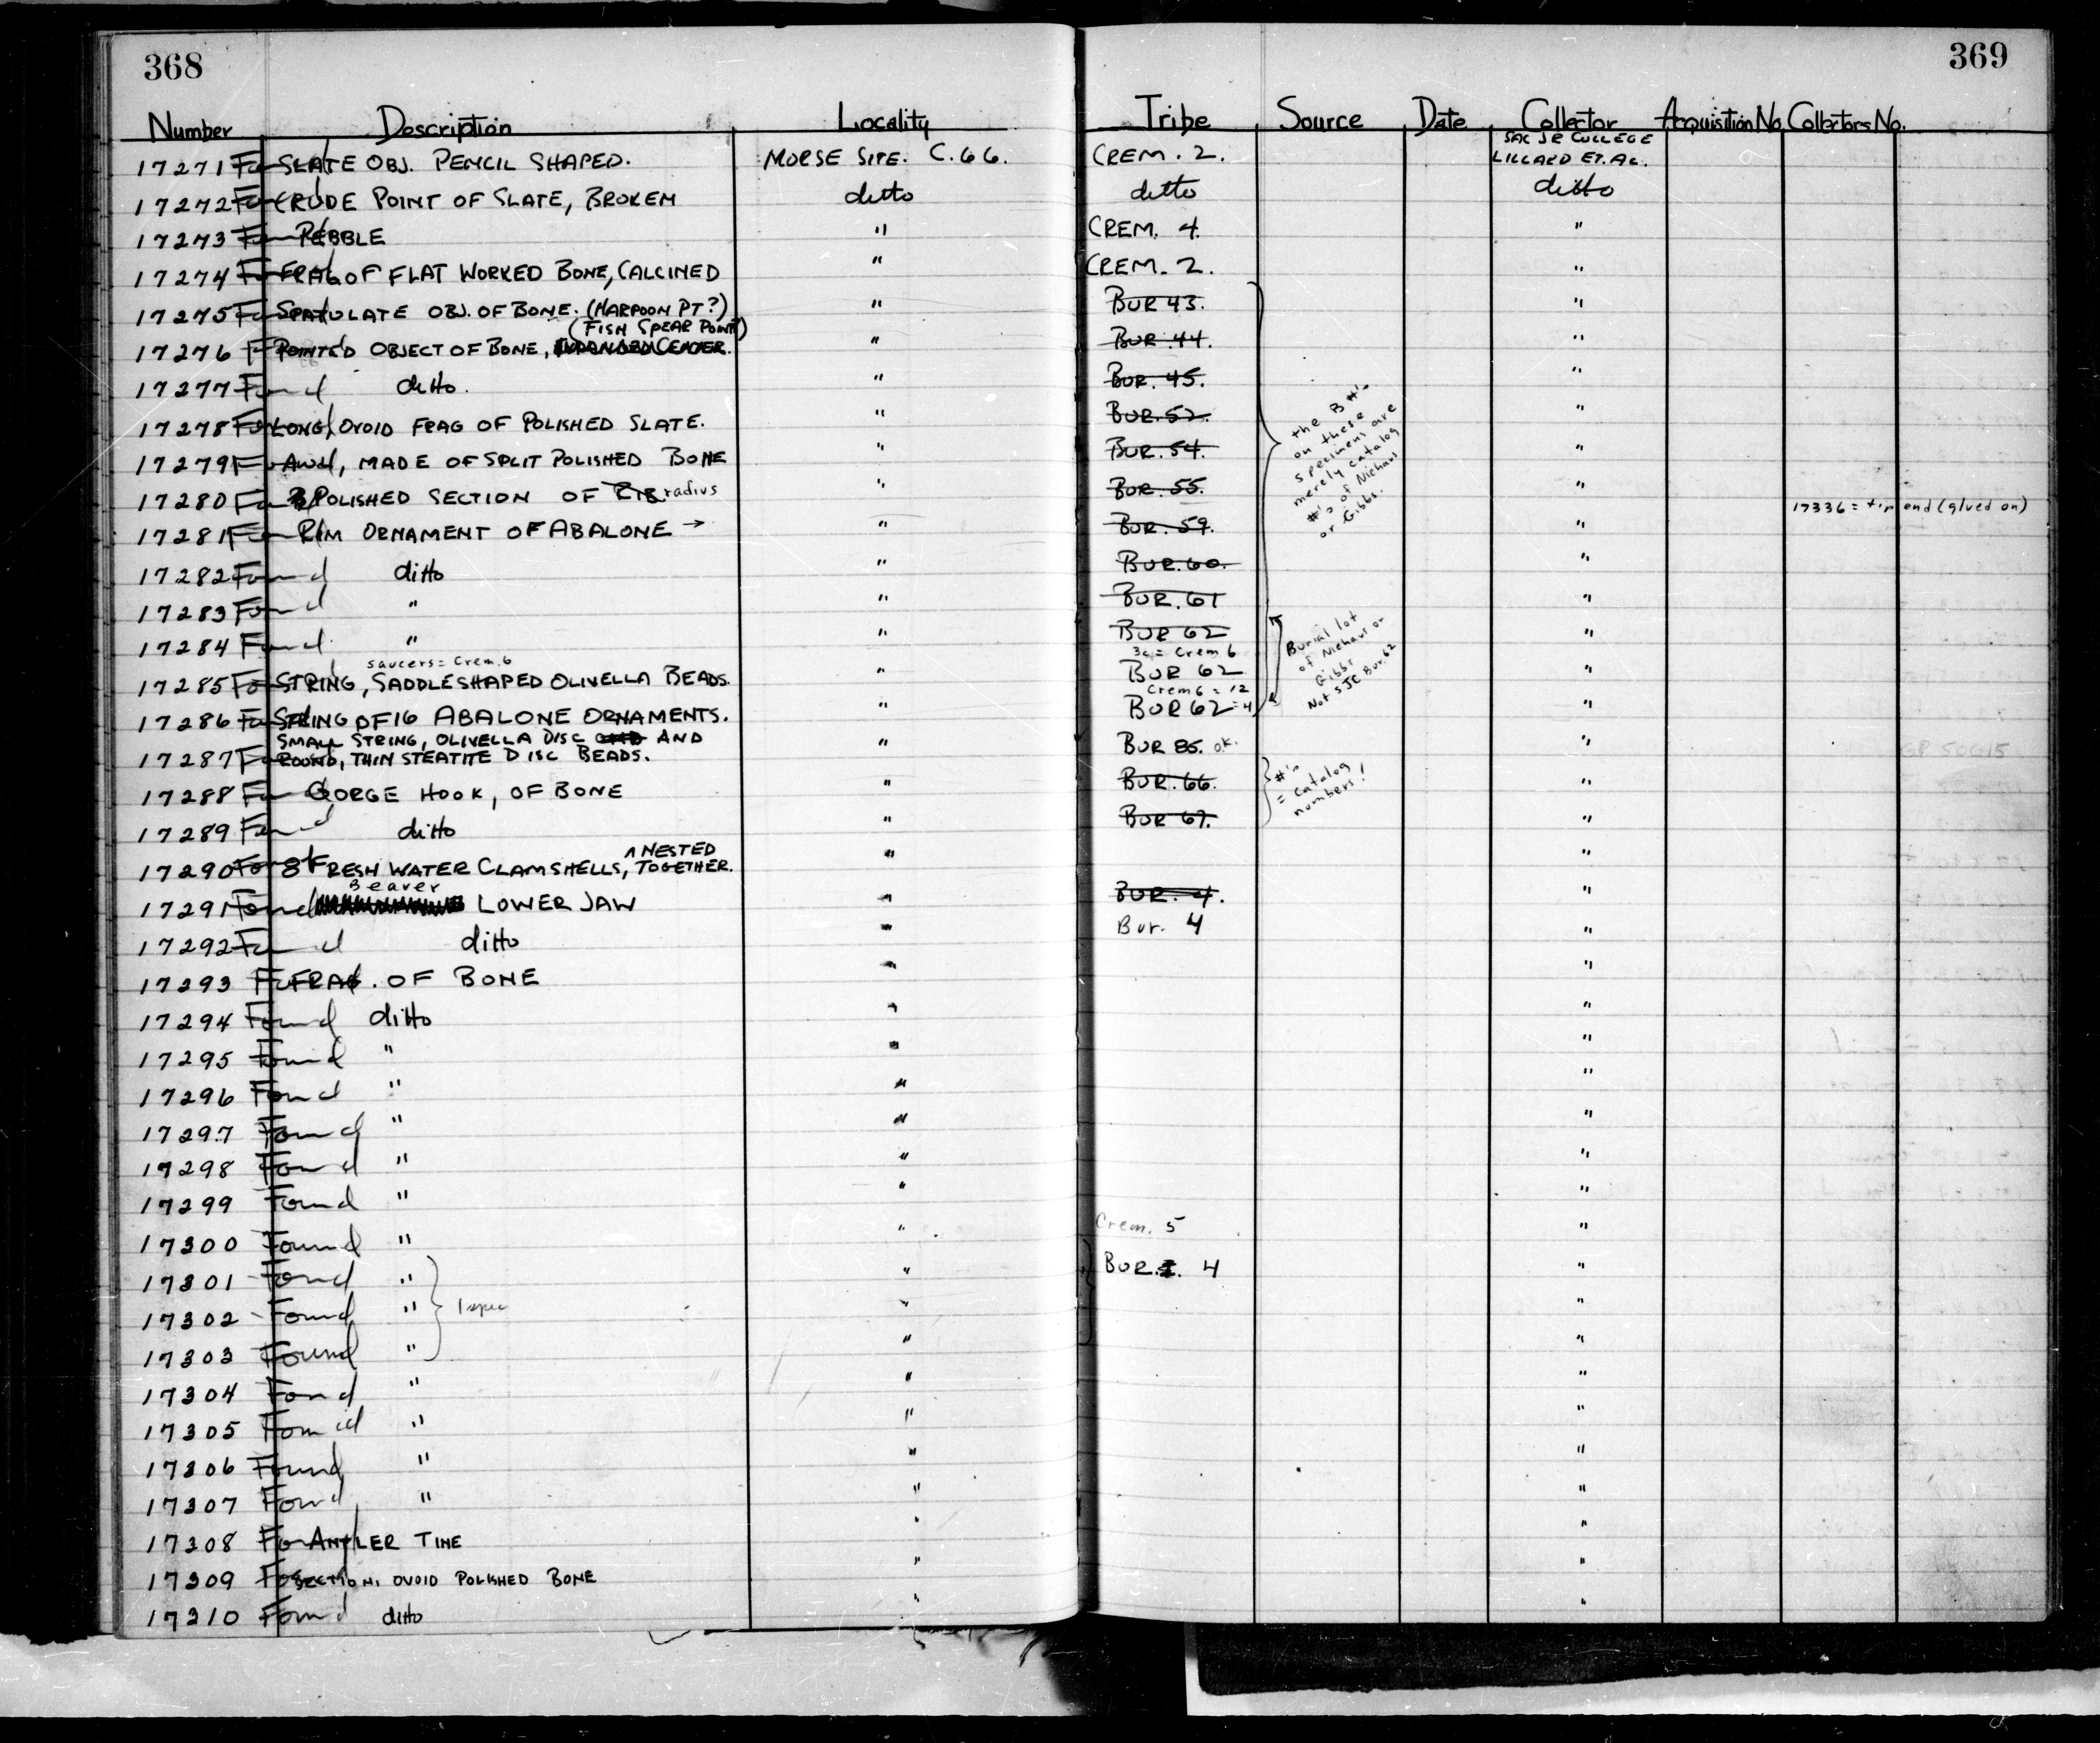 368
369
Number Description Locality Tribe Source Date Collector Acquisition No. Collectors No.
SAC JR COLLEGE
17271 Found SLATE OBJ. PENCIL SHAPED. MORSE SITE. C.66. CREM. 2. LILLARD ET. AL.
17272 Found CRUDE POINT OF SLATE, BROKEN ditto ditto ditto
17273 Found PEBBLE " CREM. 4. "
17274 Found FRAG OF FLAT WORKED BONE, CALCINED " CREM. 2. "
17275 Found SPATULATE OBJ. OF BONE. (HARPOON PT?) " BUR 43. "
(FISH SPEAR POINT?)
17276 Found POINTED OBJECT OF BONE, EXPANDED CENTER. " BUR. 44. "
17277 Found ditto. " BUR. 45. "
17278 Found LONG, OVOID FRAG OF POLISHED SLATE. " BUR. 52. "
17279 Found AWL, MADE OF SPLIT POLISHED BONE " BUR. 54. "
the B #'s
on these
specimens are
merely catalog
#'s of Niehaus
or Gibbs.
17280 Found POLISHED SECTION OF RIB radius " BUR. 55. "
17281 Found RIM ORNAMENT OF ABALONE → " BUR. 59. " 17336 = tip end (glued on)
17282 Found ditto " BUR. 60. "
17283 Found " " BUR. 61 "
17284 Found " " BUR 62 "
saucers = Crem. 6 3c = Crem 6
17285 Found STRING, SADDLESHAPED OLIVELLA BEADS. " BUR 62 "
Crem 6 = 12
17286 Found STRING OF 16 ABALONE ORNAMENTS. " BUR 62 = 4 "
Burial lot
of Niehaus or
Gibbs
Not SJC Bur. 62
SMALL STRING, OLIVELLA DISC AND
17287 Found ROUND, THIN STEATITE DISC BEADS. " BUR 85. ok. "
17288 Found GORGE HOOK, OF BONE " BUR. 66. "
17289 Found ditto " BUR 67. "
#'s
= catalog
numbers!
NESTED
17290 Found 8 FRESH WATER CLAMSHELLS, TOGETHER. " "
Beaver
17291 Found LOWER JAW " BUR. 4. "
17292 Found ditto " Bur. 4 "
17293 Found FRAG. OF BONE " "
17294 Found ditto " "
17295 Found " " "
17296 Found " " "
17297 Found " " "
17298 Found " " "
17299 Found " " "
17300 Found " " Crem. 5 "
17301 Found " " BUR. 4 "
17302 - Found " 1 spec " "
17303 Found " " "
17304 Found " " "
17305 Found " " "
17306 Found " " "
17307 Found " " "
17308 Found ANTLER TINE " "
17309 Found SECTION, OVOID POLISHED BONE " "
17310 Found ditto " "